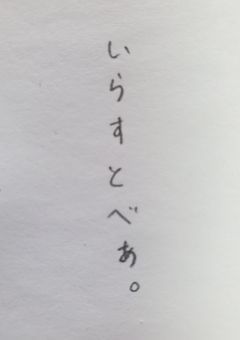 いらすとべあ。